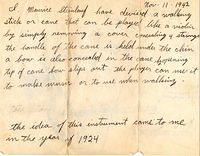 Nov. 11 - 1942
I, Maurice Steinlauf have devised a walking
stick or cane that can be played like a violin
by simply removing a cover concealing 4 strings
the handle of the cane is held under the chin
a bow is also concealed in the cane by opening
top of cane bow slips out the player can use it
to make music or to use when walking
the idea of this instrument came to me
in the year of 1924